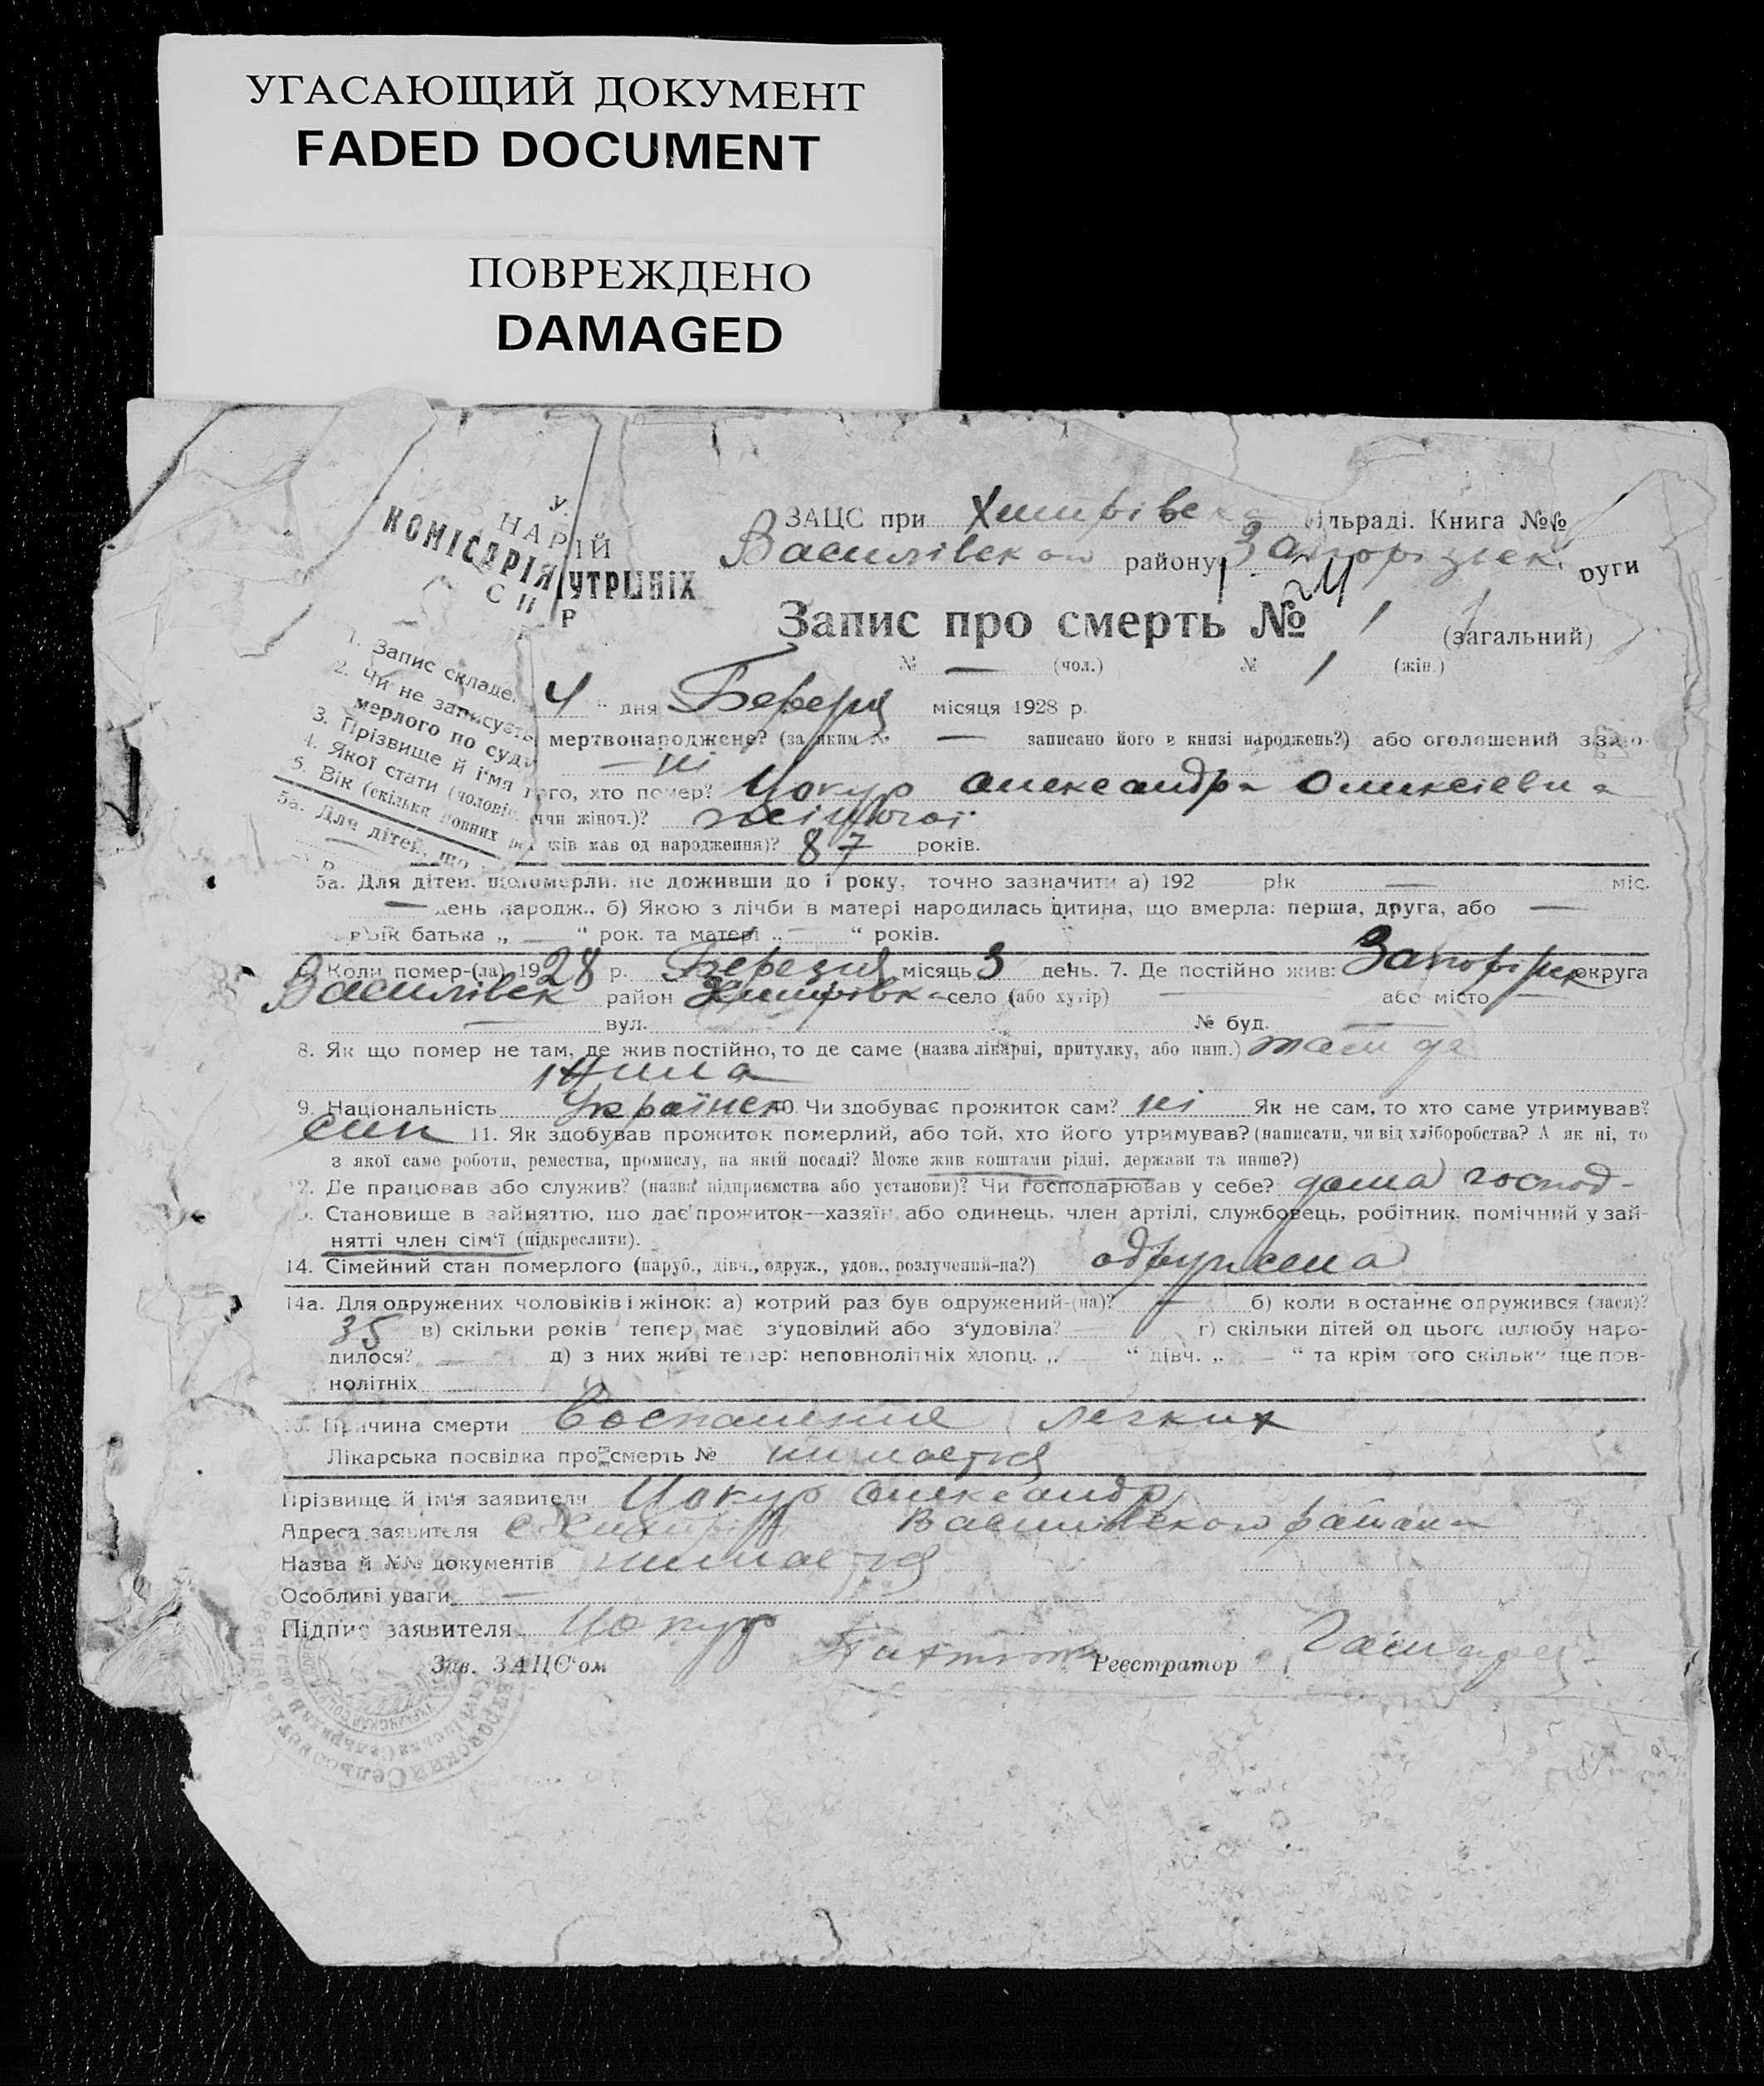 УГАСАЮЩИЙ ДОКУМЕНТ
FADED DOCUMENT
ПОВРЕЖДЕНО
DAMAGED
У.
НАРІЙ
КОМІСАРІЯ УТРІШНІХ
С Р
ЗАЦС при Хитрівс ільраді. Книга №№
Василівськ району Запорізьк. руги
Запис про смерть № 1 (загальний)
№ — (чол.) № 1 (жін.)
1. Запис складе. 4 " дня Березня місяця 1928 р.
2. Чи не записуєть мертвонароджене? (за яким № — записано його в книзі народжень?) або оголошений
мерлого по суду — ні
3. Прізвище й ім'я того, хто помер? Цокур Олександра Олексіевна
4. Якої стати (чоловіч. чи жіноч.)? жіночої
5. Вік (скільки повних років мав од народження)? 87 років.
5а. Для дітей, що
5а. Для дітей, що померли, не доживши до 1 року, точно зазначити а) 192 — рік — міс.
— день народж., б) Якою з лічби в матері народилась дитина, що вмерла: перша, друга, або —
в) вік батька „ — " рок. та матері „ — " років.
Коли помер-(ла) 1928 р. Березня місяць 3 день. 7. Де постійно жив: Запоріжж округа
Василівськ район Хитрівка село (або хутір) — або місто —
— вул. № буд. —
8. Як що помер не там, де жив постійно, то де саме (назва лікарні, притулку, або инш.) там де
жила
9. Національність Українск 10. Чи здобуває прожиток сам? ні Як не сам, то хто саме утримував?
син 11. Як здобував прожиток померлий, або той, хто його утримував? (написати, чи від хліборобства? А як ні, то
з якої саме роботи, ремества, промислу, на якій посаді? Може жив коштами рідні, держави та инше?)
12. Де працював або служив? (назва підприємства або установи)? Чи господарював у себе? дома господ-
Становище в зайняттю, що дає прожиток—хазяїн або одинець, член артілі, службовець, робітник, помічний у зай-
нятті член сім'ї (підкреслити).
14. Сімейний стан померлого (паруб., дівч., одруж., удов., розлучений-на?) одружена
14а. Для одружених чоловіків і жінок: а) котрий раз був одружений-(на)? — б) коли востаннє одружився (лася)?
35 в) скільки років тепер має з'удовілий або з'удовіла? — г) скільки дітей од цього шлюбу наро-
дилося? — д) з них живі тепер: неповнолітніх хлопц. „ — " дівч. „ — " та крім того скільки ще пов-
нолітніх
Причина смерти Воспаление легких
Лікарська посвідка про смерть № нимаетця
Прізвище й ім'я заявителя Цокур Олександр
Адреса заявителя Василівского района
Назва й №№ документів нимаетця
Особливі уваги —
Підпис заявителя Цокур
Зав. ЗАЦС'ом Реєстратор